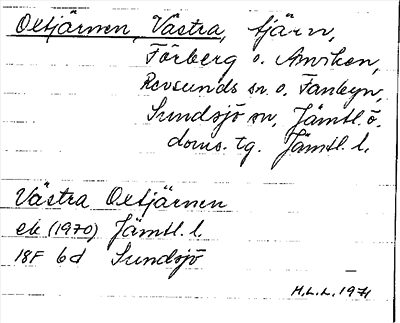 Oxtjärnen, Västra, tjärn,
Förberg o. Anviken,
Revsunds sn. o. Fanbyn,
Sundsjö sn, Jämtl. ö.
doms. tg. Jämtl. l.
Västra Oxtjärnen
ek (1970) Jämtl. l.
18F 6d Sundsjö
M.L.L. 1971